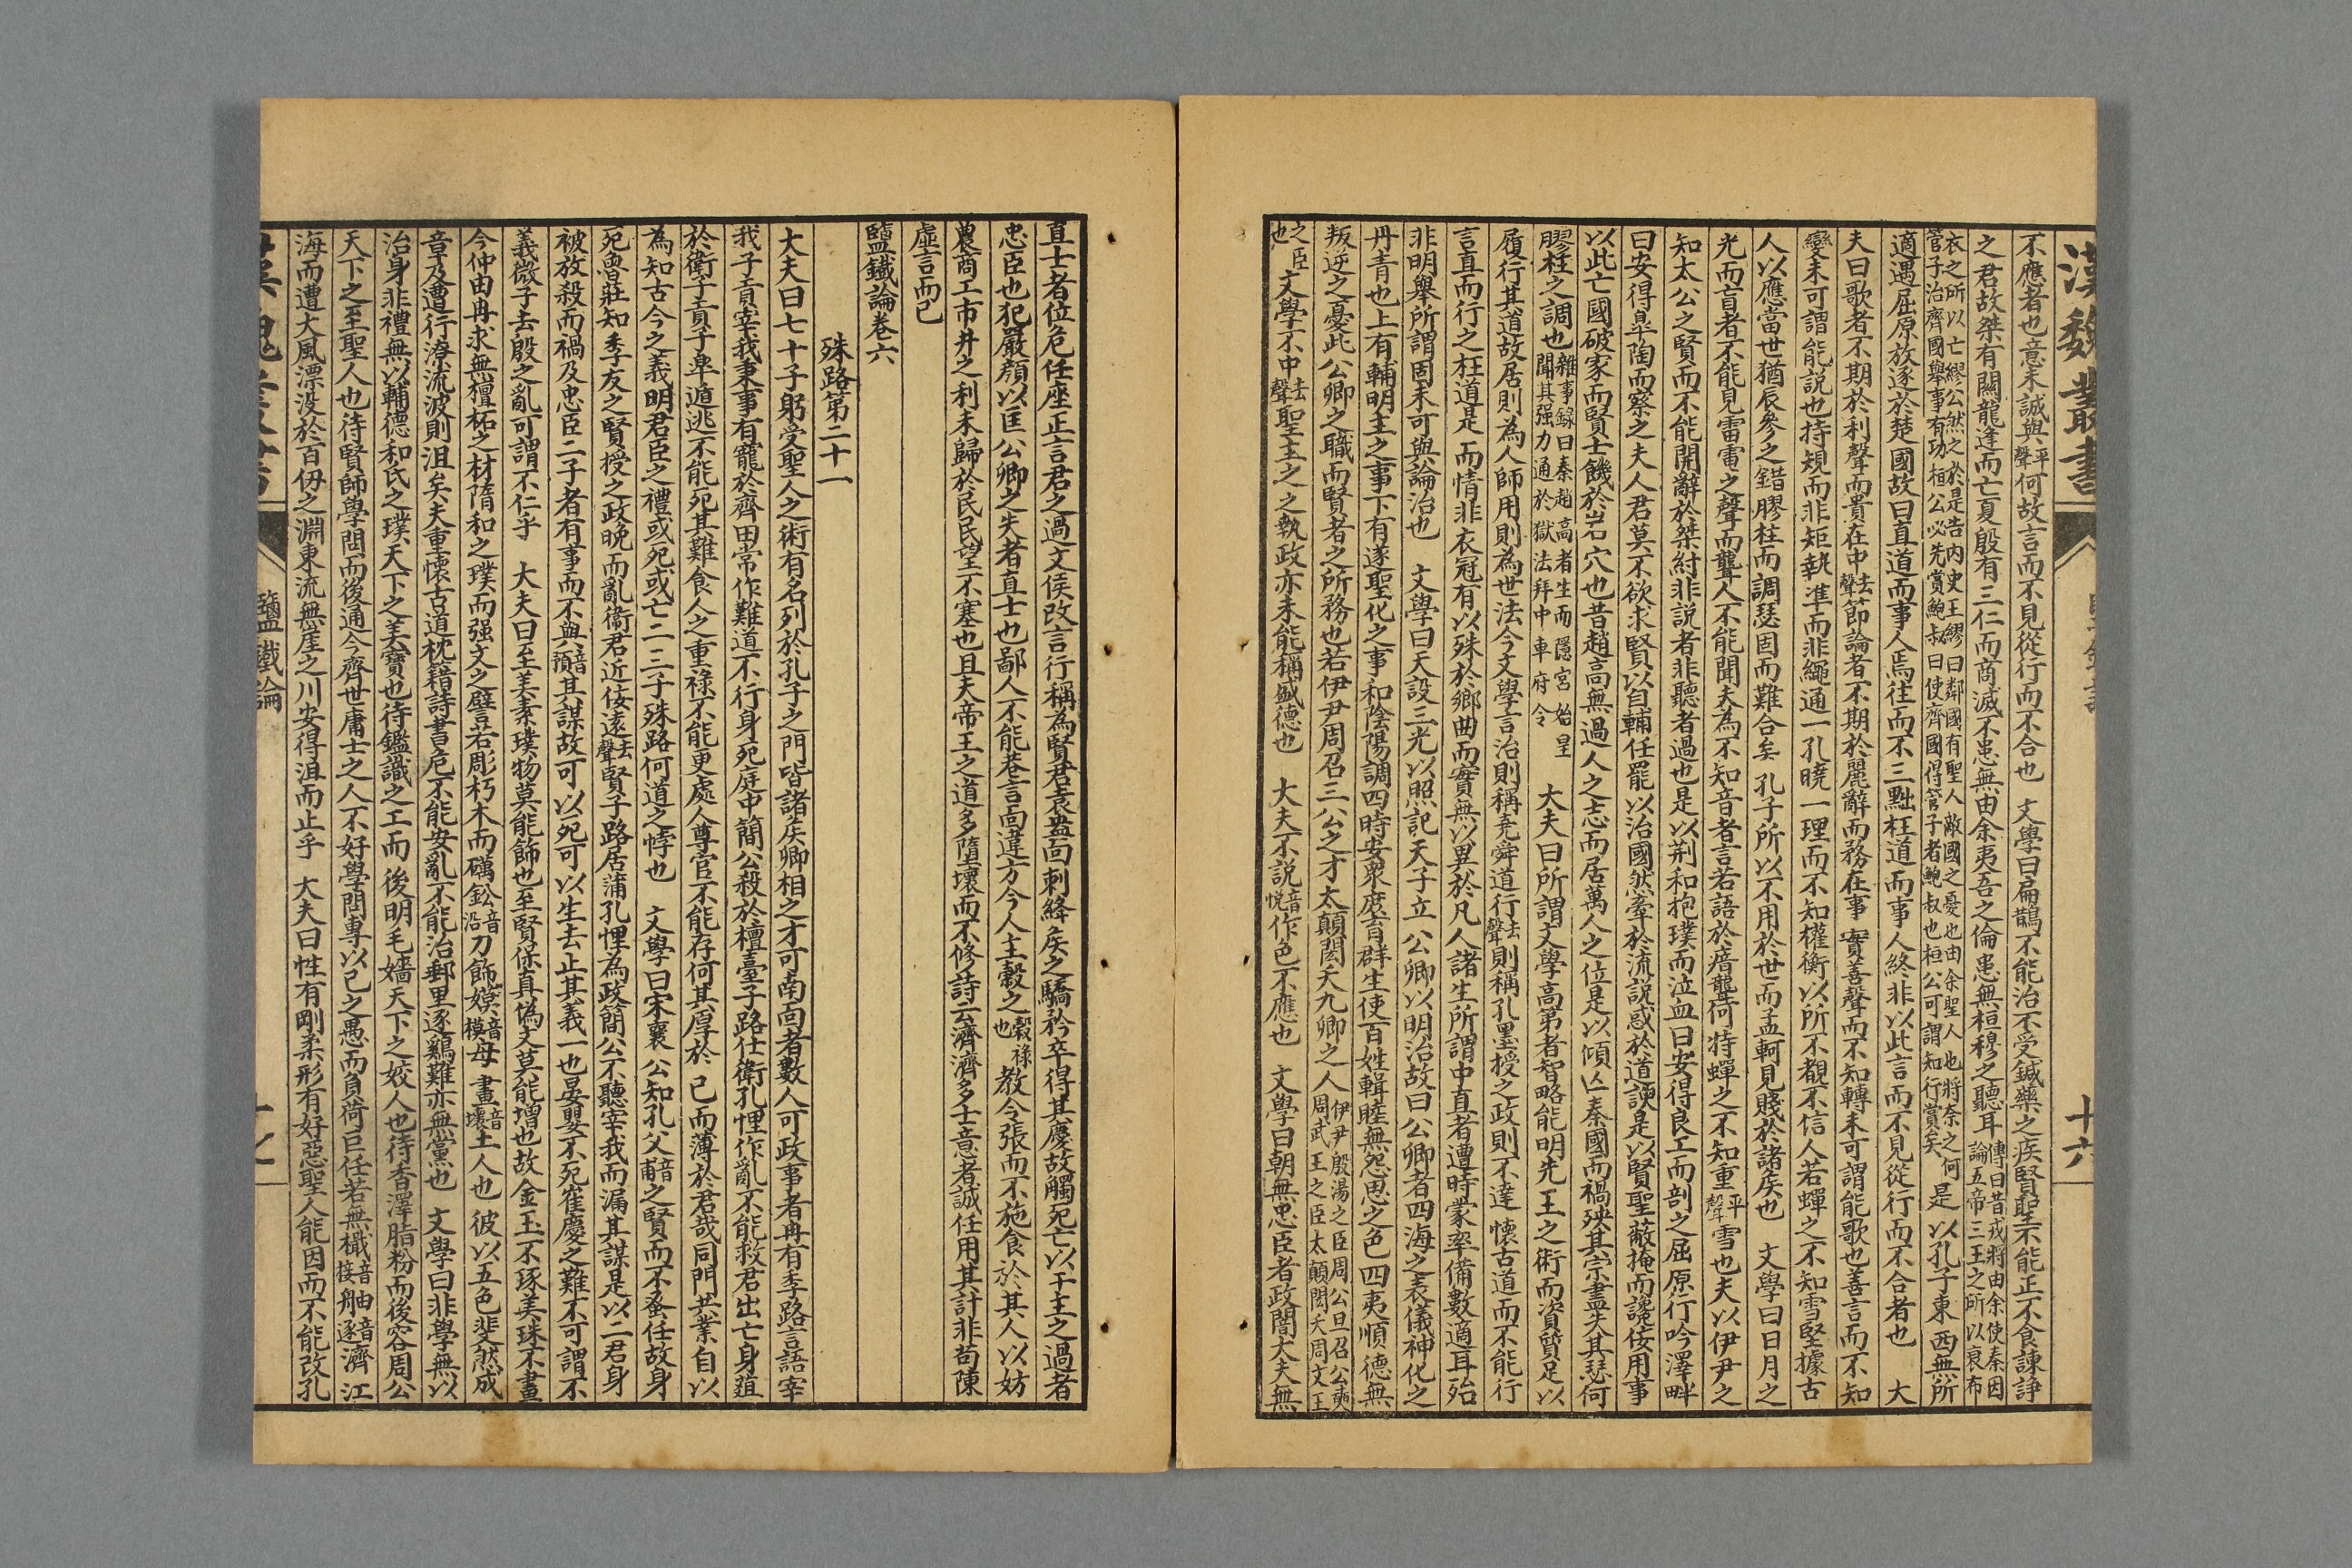 漢魏叢書
十六
不應者也意未誠與平聲何故言而不見從行而不合也 文學曰扁鵲不能治不受鍼藥之疾賢聖不能正不食諫諍
之君故桀有關龍逢而亡夏殷有三仁而商滅不患無由余夷吾之倫患無桓穆之聽耳傳曰昔戎將由余使秦因論五帝三王之所以衰布
衣之所以亡繆公然之於是告內史王繆曰鄰國有聖人敵國之憂也由余聖人也將奈之何管子治齊國舉事有功桓公必先賞鮑叔曰使齊國得管子者鮑叔也桓公可謂知行賞矣是以孔子東西無所
適遇屈原放逐於楚國故曰直道而事人焉往而不三黜枉道而事人終非以此言而不見從行而不合者也 大
夫曰歌者不期於利聲而貴在中去聲節論者不期於麗辭而務在事實善聲而不知轉未可謂能歌也善言而不知
變未可謂能說也持規而非矩執準而非繩通一孔曉一理而不知權衡以所不覩不信人若蟬之不知雪堅據古
人以應當世猶辰參之錯膠柱而調瑟固而難合矣孔子所以不用於世而孟軻見賤於諸侯也 文學曰日月之
光而盲者不能見雷電之聲而聾人不能聞夫為不知音者言若語於瘖聾何特蟬之不知重平聲雪也夫以伊尹之
知太公之賢而不能開辭於桀紂非說者非聽者過也是以荆和抱璞而泣血曰安得良工而剖之屈原行吟澤畔
曰安得皐陶而察之夫人君莫不欲求賢以自輔任罷以治國然牽於流說惑於道諛是以賢聖蔽掩而讒佞用事
以此亡國破家而賢士饑於岩穴也昔趙高無過人之志而居萬人之位是以傾亡秦國而禍殃其宗盡失其瑟何
膠柱之調也雜事錄曰秦趙高者生而隱宮始皇聞其强力通於獄法拜中車府令 大夫曰所謂文學高第者智略能明先王之術而資質足以
履行其道故居則為人師用則為世法今文學言治則稱堯舜道行去聲則稱孔墨授之政則不達懷古道而不能行
言直而行之枉道是而情非衣冠有以殊於鄉曲而實無以異於凡人諸生所謂中直者遭時蒙率備數適耳殆
非明舉所謂固未可與論治也 文學曰天設三光以照記天子立公卿以明治故曰公卿者四海之表儀神化之
丹青也上有輔明主之事下有遂聖化之事和陰陽調四時安衆庶育群生使百姓輯睦無怨思之色四夷順德無
叛逆之憂此公卿之職而賢者之所務也若伊尹周召三公之才太顛閎夭九卿之人伊尹殷湯之臣周公旦召公奭周武王之臣太顛閎夭周文王
之臣也 文學不中去聲聖主之之執政亦未能稱盛德也 大夫不說音悅作色不應也 文學曰朝無忠臣者政闇大夫無
直士者位危任座正言君之過文侯改言行稱為賢君袁盎面刺絳侯之驕矜卒得其慶故觸死亡以干主之過者
忠臣也犯嚴顏以匡公卿之失者直士也鄙人不能巷言面違方今人主穀之穀祿也教令張而不施食於其人以妨
農商工市井之利未歸於民民望不塞也且夫帝王之道多墮壞而不修詩云濟濟多士意者誠任用其計非苟陳
虛言而已
鹽鐵論卷六
殊路第二十一
大夫曰七十子躬受聖人之術有名列於孔子之門皆諸侯卿相之才可南面者數人可政事者冉有季路言語宰
我子貢宰我秉事有寵於齊田常作難道不行身死庭中簡公殺於檀臺子路仕衛孔悝作亂不能救君出亡身葅
於衛子貢子臯遁逃不能死其難食人之重祿不能更處人尊官不能存何其厚於己而薄於君哉同門共業自以
為知古今之義明君臣之禮或死或亡二三子殊路何道之悖也 文學曰宋襄公知孔父音甫之賢而不蚤任故身
死魯莊知季友之賢授之政晚而亂衛君近佞遠去聲賢子路居蒲孔悝為政簡公不聽宰我而漏其謀是以二君身
被放殺而禍及忠臣二子者有事而不與音預其謀故可以死可以生去止其義一也晏嬰不死崔慶之難不可謂不
義微子去殷之亂可謂不仁乎 大夫曰至美素璞物莫能飾也至賢保真偽文莫能增也故金玉不琢美珠不畫
今仲由冉求無檀柘之材隋和之璞而强文之譬若彫朽木而礪鉛音沿刀飾嫫音模母畫壞音土人也彼以五色斐然成
音及遭行潦流波則沮矣夫重懷古道枕籍詩書危不能安亂不能治郵里逐鷄難亦無黨也 文學曰非學無以
治身非禮無以輔德和氏之璞天下之美寶也待鑑識之工而後明毛嬙天下之姣人也待香澤脂粉而後容周公
天下之至聖人也待賢師學問而後通今齊世庸士之人不好學問專以己之愚而負荷巨任若無檝音接舳音逐濟江
海而遭大風漂没於百仞之淵東流無厓之川安得沮而止乎 大夫曰性有剛柔形有好惡聖人能因而不能改孔
鹽鐵論